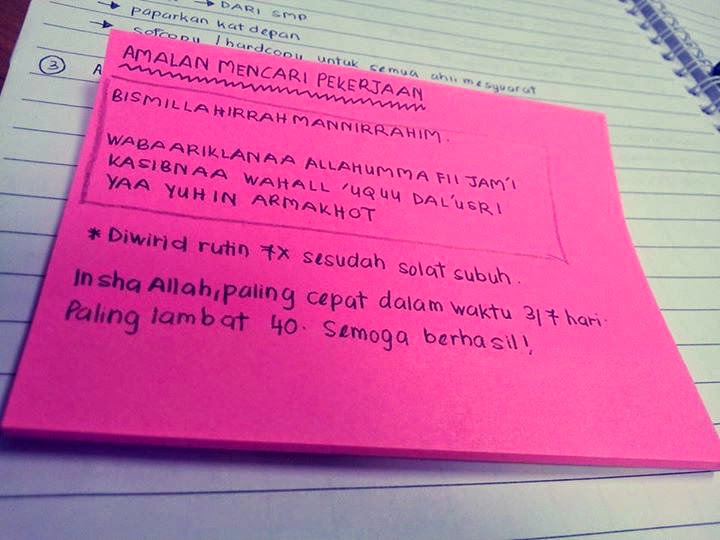 → DARI SMP
→ paparkan kat depan
→ sofcopy / hardcopy untuk semua ahli mesyuarat
③ A
AMALAN MENCARI PEKERJAAN
BISMILLAHIRRAHMANNIRRAHIM.
WABAARIKLANAA ALLAHUMMA FII JAM'I
KASIBNAA WAHALL 'UQUU DAL'USRI
YAA YUHIN ARMAKHOT
* Diwirid rutin 7X sesudah solat subuh.
InshaAllah, paling cepat dalam waktu 3/7 hari.
Paling lambat 40. Semoga berhasil!,